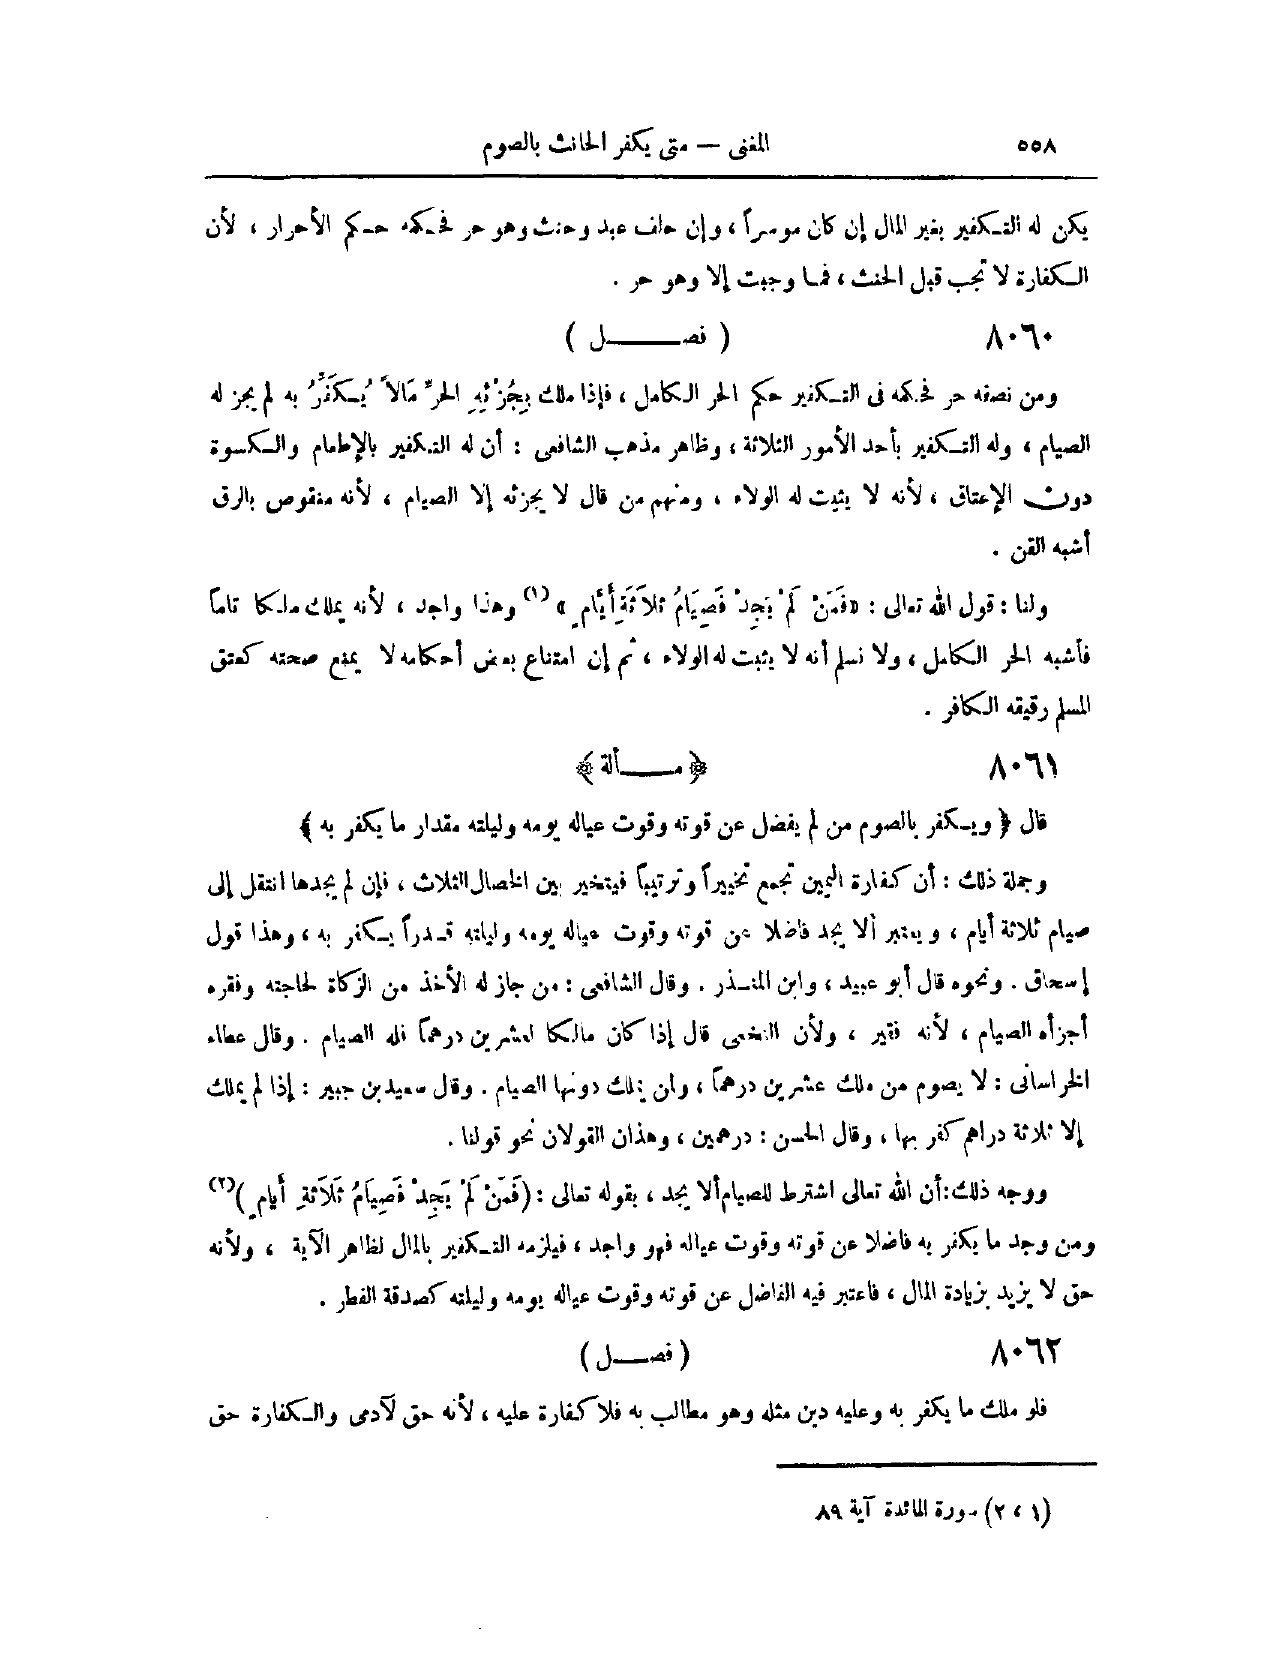 ٥٥٨
المغنى — متى يكفر الحانث بالصوم
يكن له التكفير بغير المال إن كان موسراً ، وإن حلف عبد وحنث وهو حر فحكمه حكم الأحرار ، لأن
الكفارة لا تجب قبل الحنث ، فما وجبت إلا وهو حر .
٨٠٦٠
( فصل )
ومن نصفه حر فحكمه فى التكفير حكم الحر الكامل ، فإذا ملك بِجُزْئِهِ الحرِّ مَالاً يُكَفِّرُ به لم يجز له
الصيام ، وله التكفير بأحد الأمور الثلاثة ، وظاهر مذهب الشافعى : أن له التكفير بالإطعام والكسوة
دون الإعتاق ، لأنه لا يثبت له الولاء ، ومنهم من قال لا يجزئه إلا الصيام ، لأنه منقوص بالرق
أشبه القن .
ولنا : قول الله تعالى : «فَمَنْ لَمْ يَجِدْ فَصِيَامُ ثلاَثَةِ أَيَّامٍ » (١) وهذا واجد ، لأنه يملك ملكا تاماً
فأشبه الحر الكامل ، ولا نسلم أنه لا يثبت له الولاء ، ثم إن امتناع بعض أحكامه لا يمنع صحته كعتق
المسلم رقيقه الكافر .
٨٠٦١
﴿ مسألة ﴾
قال ﴿ ويكفر بالصوم من لم يفضل عن قوته وقوت عياله يومه وليلته مقدار ما يكفر به ﴾
وجملة ذلك : أن كفارة اليمين تجمع تخييراً وترتيباً فيتخير بين الخصال الثلاث ، فإن لم يجدها انتقل إلى
صيام ثلاثة أيام ، ويعتبر ألا يجد فاضلا عن قوته وقوت عياله يومه وليلته قدراً يكفر به ، وهذا قول
إسحاق . ونحوه قال أبو عبيد ، وابن المنذر . وقال الشافعى : من جاز له الأخذ من الزكاة لحاجته وفقره
أجزأه الصيام ، لأنه فقير ، ولأن النخعى قال إذا كان مالكا لعشرين درهماً فله الصيام . وقال عطاء
الخراسانى : لا يصوم من ملك عشرين درهماً ، ولمن يملك دونها الصيام . وقال سعيد بن جبير : إذا لم يملك
إلا ثلاثة دراهم كفر بها ، وقال الحسن : درهمين ، وهذان القولان نحو قولنا .
ووجه ذلك : أن الله تعالى اشترط للصيام ألا يجد ، بقوله تعالى : (فَمَنْ لَمْ يَجِدْ فَصِيَامُ ثَلَاثَةِ أَيامٍ )(٢)
ومن وجد ما يكفر به فاضلا عن قوته وقوت عياله فهو واجد ، فيلزمه التكفير بالمال لظاهر الآية ، ولأنه
حق لا يزيد بزيادة المال ، فاعتبر فيه الفاضل عن قوته وقوت عياله يومه وليلته كصدقة الفطر .
٨٠٦٢
( فصل )
فلو ملك ما يكفر به وعليه دين مثله وهو مطالب به فلا كفارة عليه ، لأنه حق لآدمى والكفارة حق
(١ ، ٢) سورة المائدة آية ٨٩